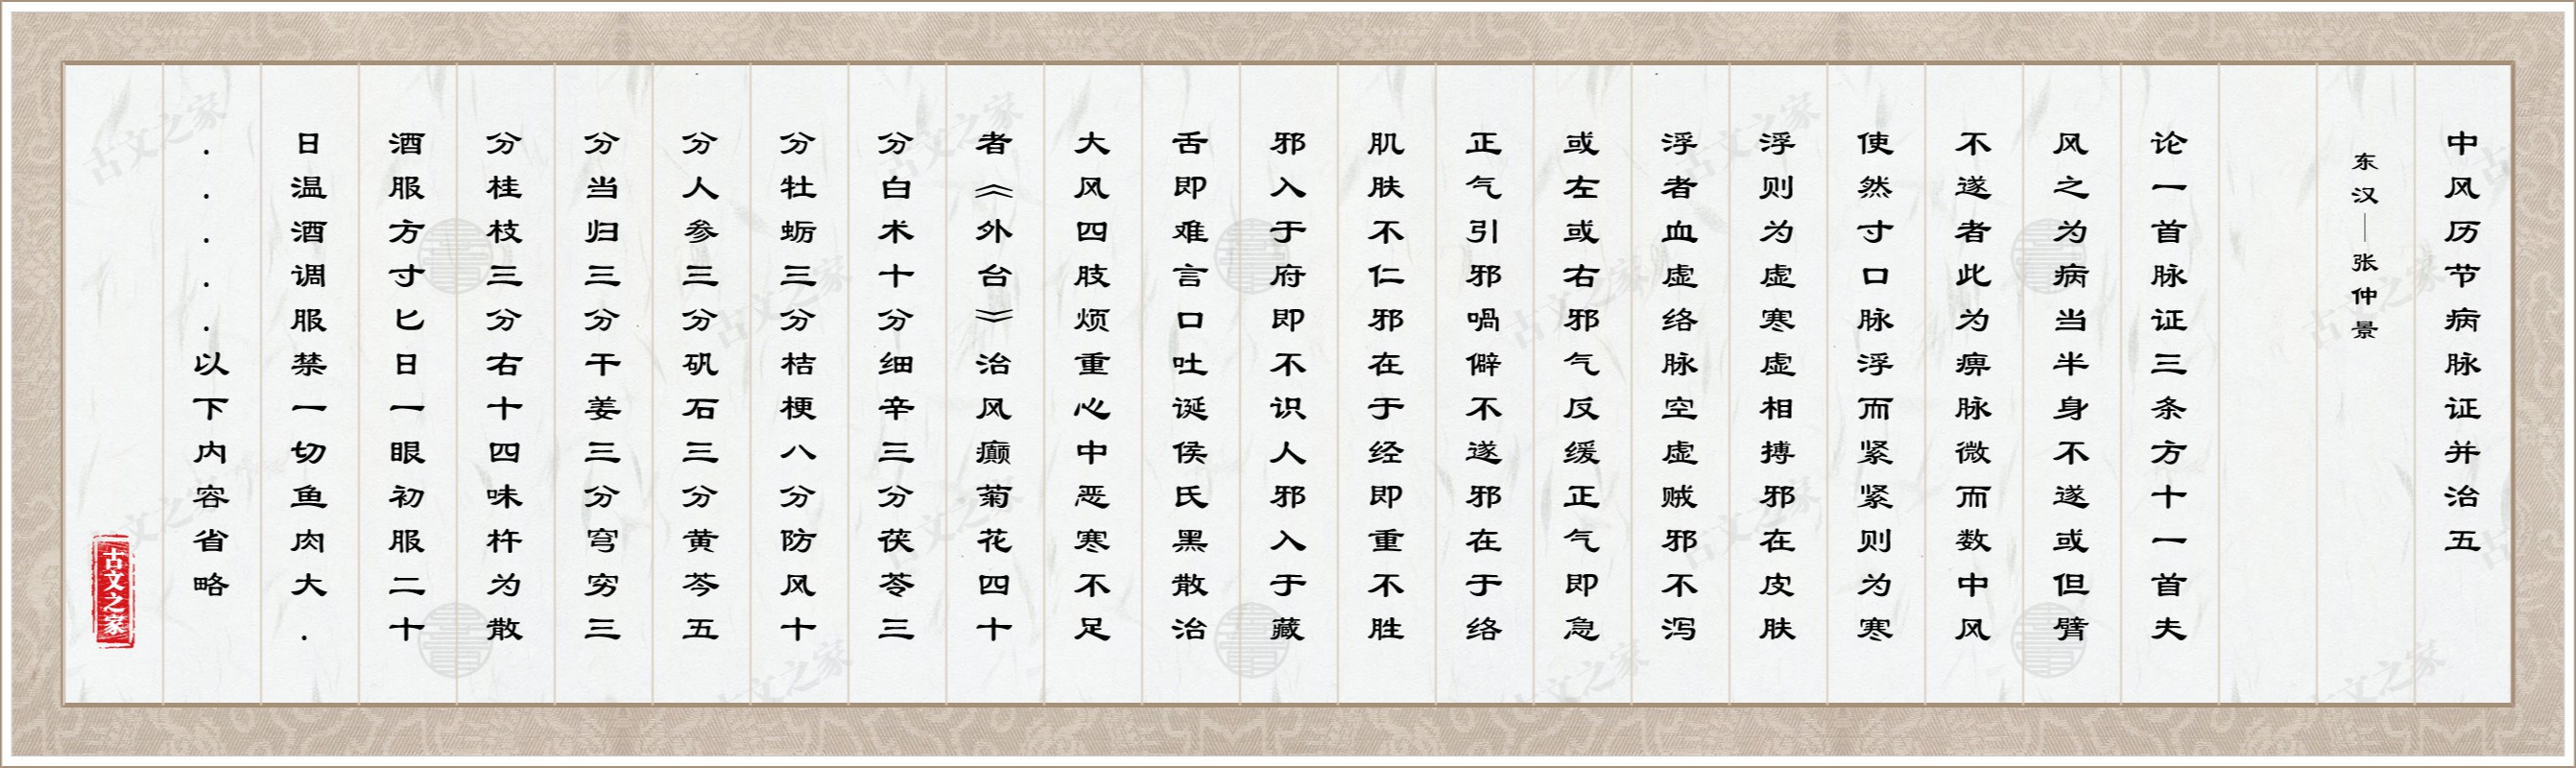 中风历节病脉证并治五
东汉—张仲景
论一首脉证三条方十一首夫
风之为病当半身不遂或但臂
不遂者此为痹脉微而数中风
使然寸口脉浮而紧紧则为寒
浮则为虚寒虚相搏邪在皮肤
浮者血虚络脉空虚贼邪不泻
或左或右邪气反缓正气即急
正气引邪喎僻不遂邪在于络
肌肤不仁邪在于经即重不胜
邪入于府即不识人邪入于藏
舌即难言口吐诞侯氏黑散治
大风四肢烦重心中恶寒不足
者《外台》治风癫菊花四十
分白术十分细辛三分茯苓三
分牡蛎三分桔梗八分防风十
分人参三分矾石三分黄芩五
分当归三分干姜三分穹穷三
分桂枝三分右十四味杵为散
酒服方寸匕日一眼初服二十
日温酒调服禁一切鱼肉大.
.....以下内容省略
古文之家